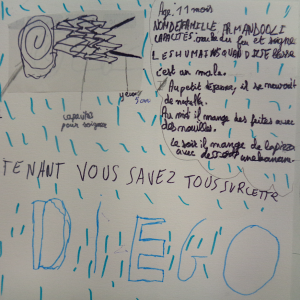 Age, 11 mois
NOM DE FAMILLE ARMANDOOLI
CAPACITÉS, crache du feu et soigne
LES HUMAINS QUAND IL SE BLESSE
c'est un male.
Au petit déjeuner, il se nourrit
de nutella.
Au midi il mange des frites avec
des nouilles.
le soir il mange de la pizza
avec une banane.
capacités
pour soigner
TENANT VOUS SAVEZ TOUS SUR CETTE
DIEGO